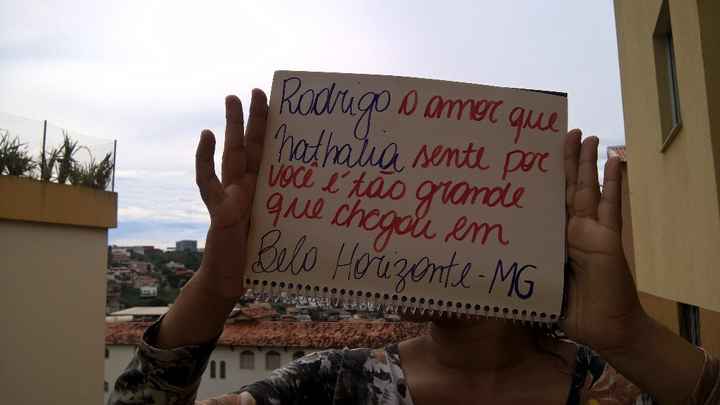 Rodrigo o amor que
Nathalia sente por
você é tão grande
que chegou em
Belo Horizonte - MG